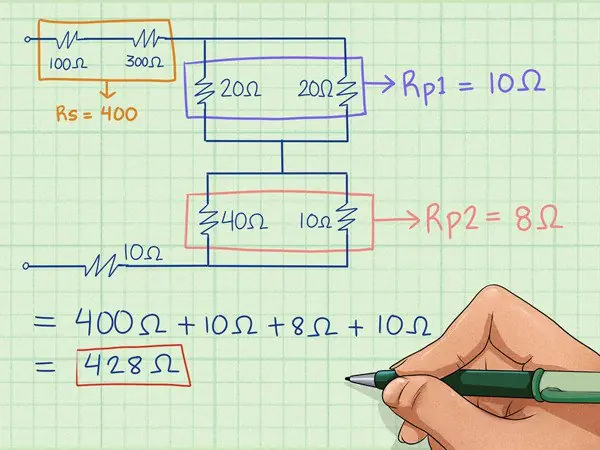 100Ω 300Ω
Rs = 400
20Ω 20Ω
Rp1 = 10Ω
40Ω 10Ω
Rp2 = 8Ω
10Ω
= 400Ω + 10Ω + 8Ω + 10Ω
= 428Ω